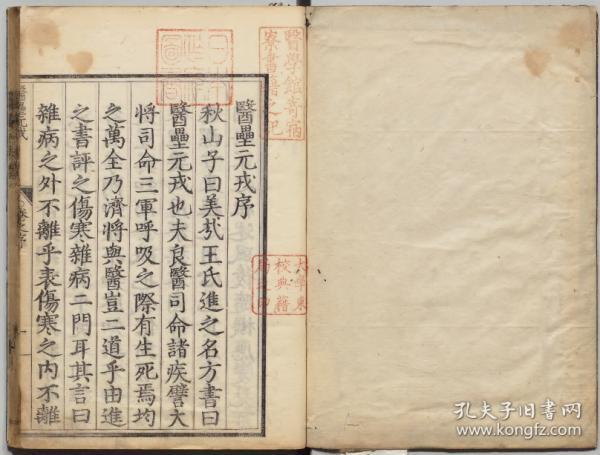 醫壘元戎序
秋山子曰美哉王氏進之名方書曰
醫壘元戎也夫良醫司命諸疾譬大
將司命三軍呼吸之際有生死焉均
之萬全乃濟將與醫豈二道乎由進
之書評之傷寒雜病二門耳其言曰
雜病之外不離乎表傷寒之内不離
醫學館寄宿
寮書籍之記
大學東
校典籍
局之印
孔夫子旧书网
www.kongfz.com